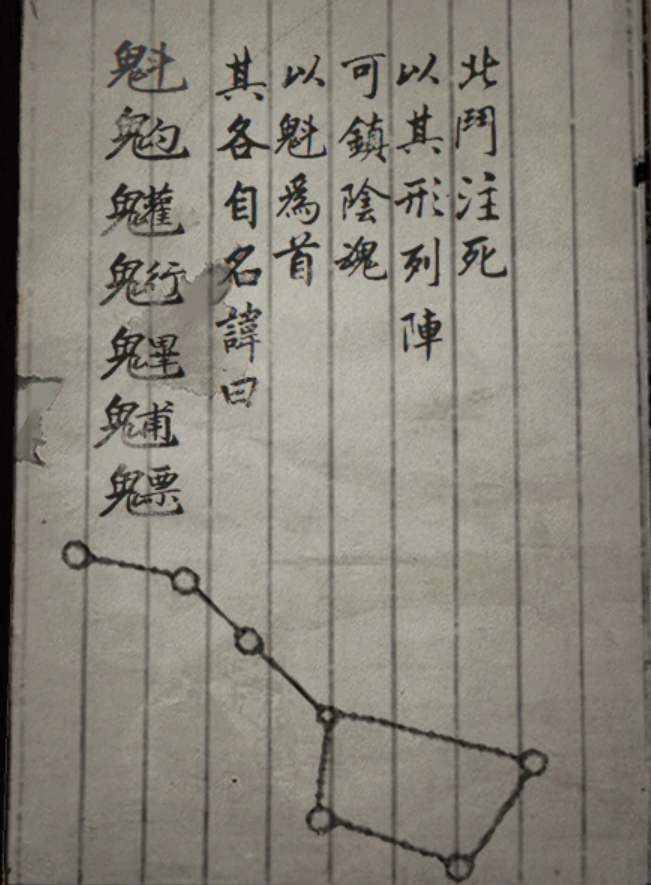 北鬥注死
以其形列陣
可鎮陰魂
以魁爲首
其各自名諱曰
魁
䰢
䰥
䰣
魓
𩳐
魒